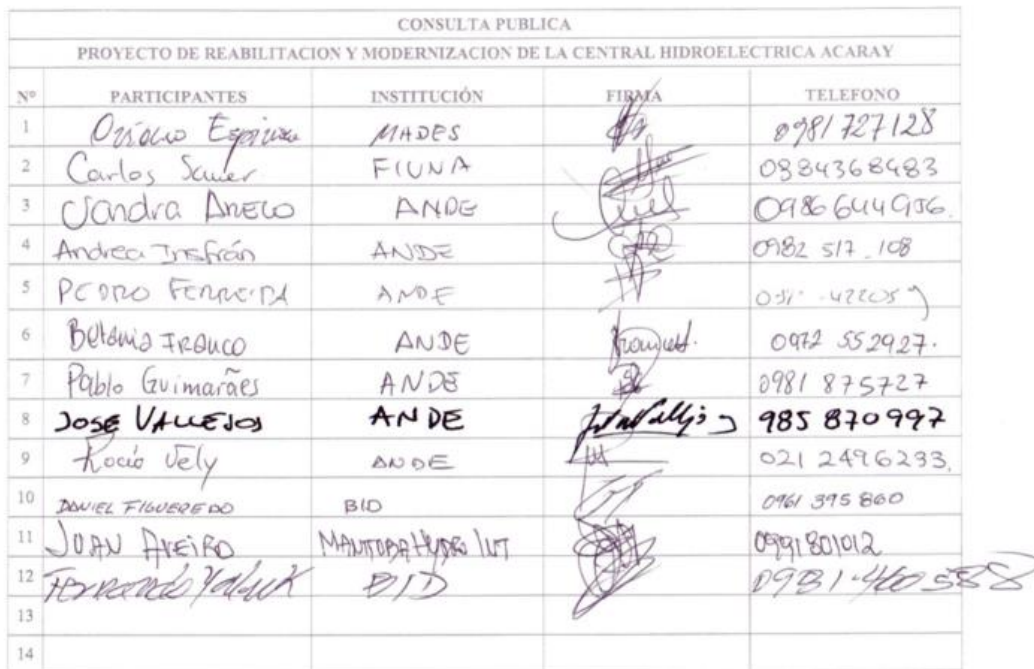 CONSULTA PUBLICA
PROYECTO DE REABILITACION Y MODERNIZACION DE LA CENTRAL HIDROELECTRICA ACARAY
Nº PARTICIPANTES INSTITUCIÓN FIRMA TELEFONO
1 MADES 0981 727128
2 Carlos FIUNA 0984368483
3 Sandra ANDE 0986644956.
4 Andrea Insfrán ANDE 0982 517.108
5 PEDRO FERREIRA ANDE
6 Betania FRANCO ANDE 0972 552927.
7 Pablo Guimarães ANDE 0981 875727
8 JOSE VALLEJOS ANDE 985 870997
9 Rocío Vely ANDE 021 2496233.
10 DANIEL FIGUEREDO BID 0961 395860
11 JUAN AVEIRO MANITOBA HYDRO INT 0991801012
12 Fernando BID 0981-460588
13
14